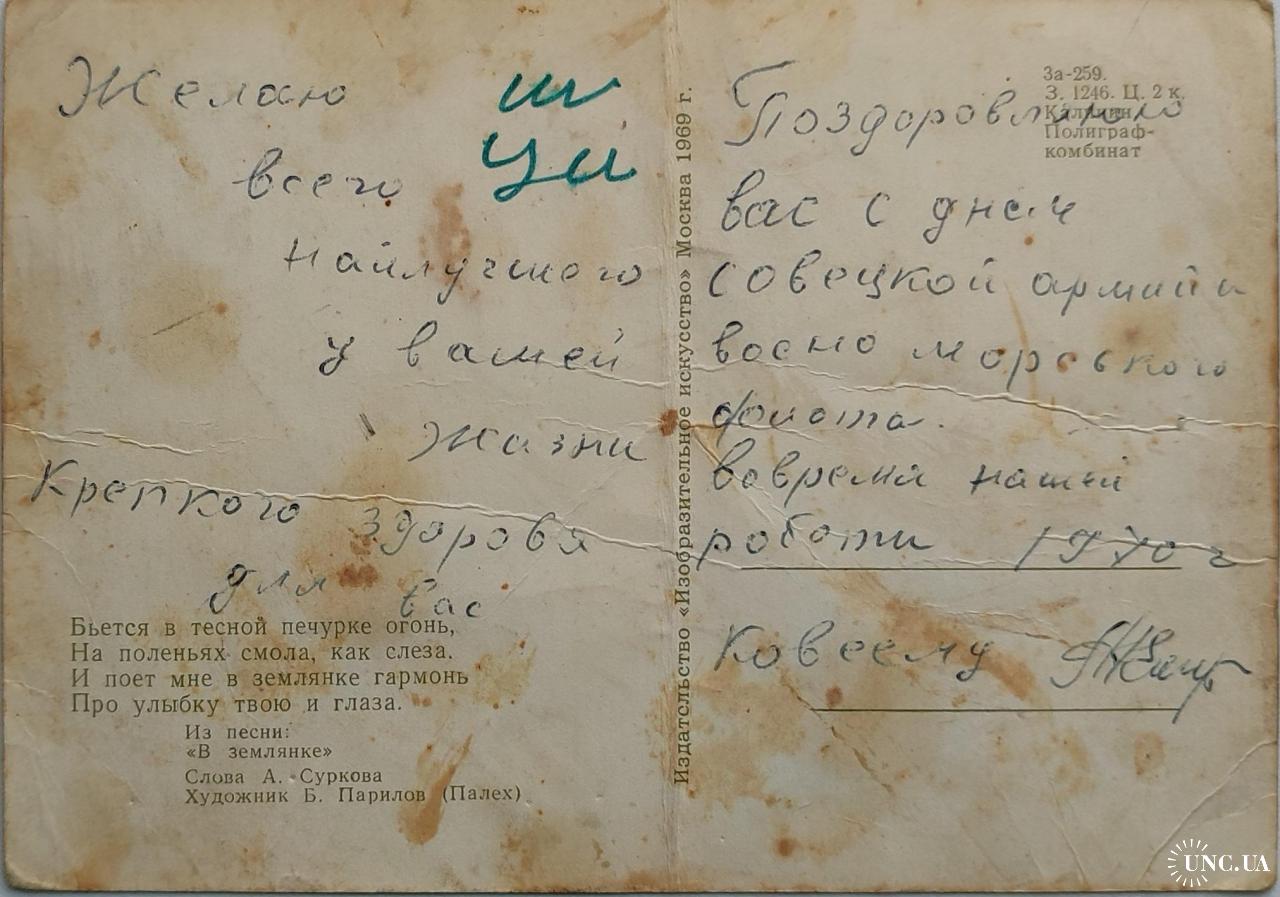 Желаю
всего
наилучшего
у вашей
жизни
Крепкого здоровя
для вас
ш
Уи
Бьется в тесной печурке огонь,
На поленьях смола, как слеза.
И поет мне в землянке гармонь
Про улыбку твою и глаза.
Из песни:
«В землянке»
Слова А. Суркова
Художник Б. Парилов (Палех)
Издатсльство «Изобразительное искусство» Москва 1969 г.
За-259.
З. 1246. Ц. 2 к.
Калинин.
Полиграф-
комбинат
Поздоровляю
вас с днем
совецкой армии и
воено морського
флота.
вовремя нашей
роботи 1970 г
UNC.UA